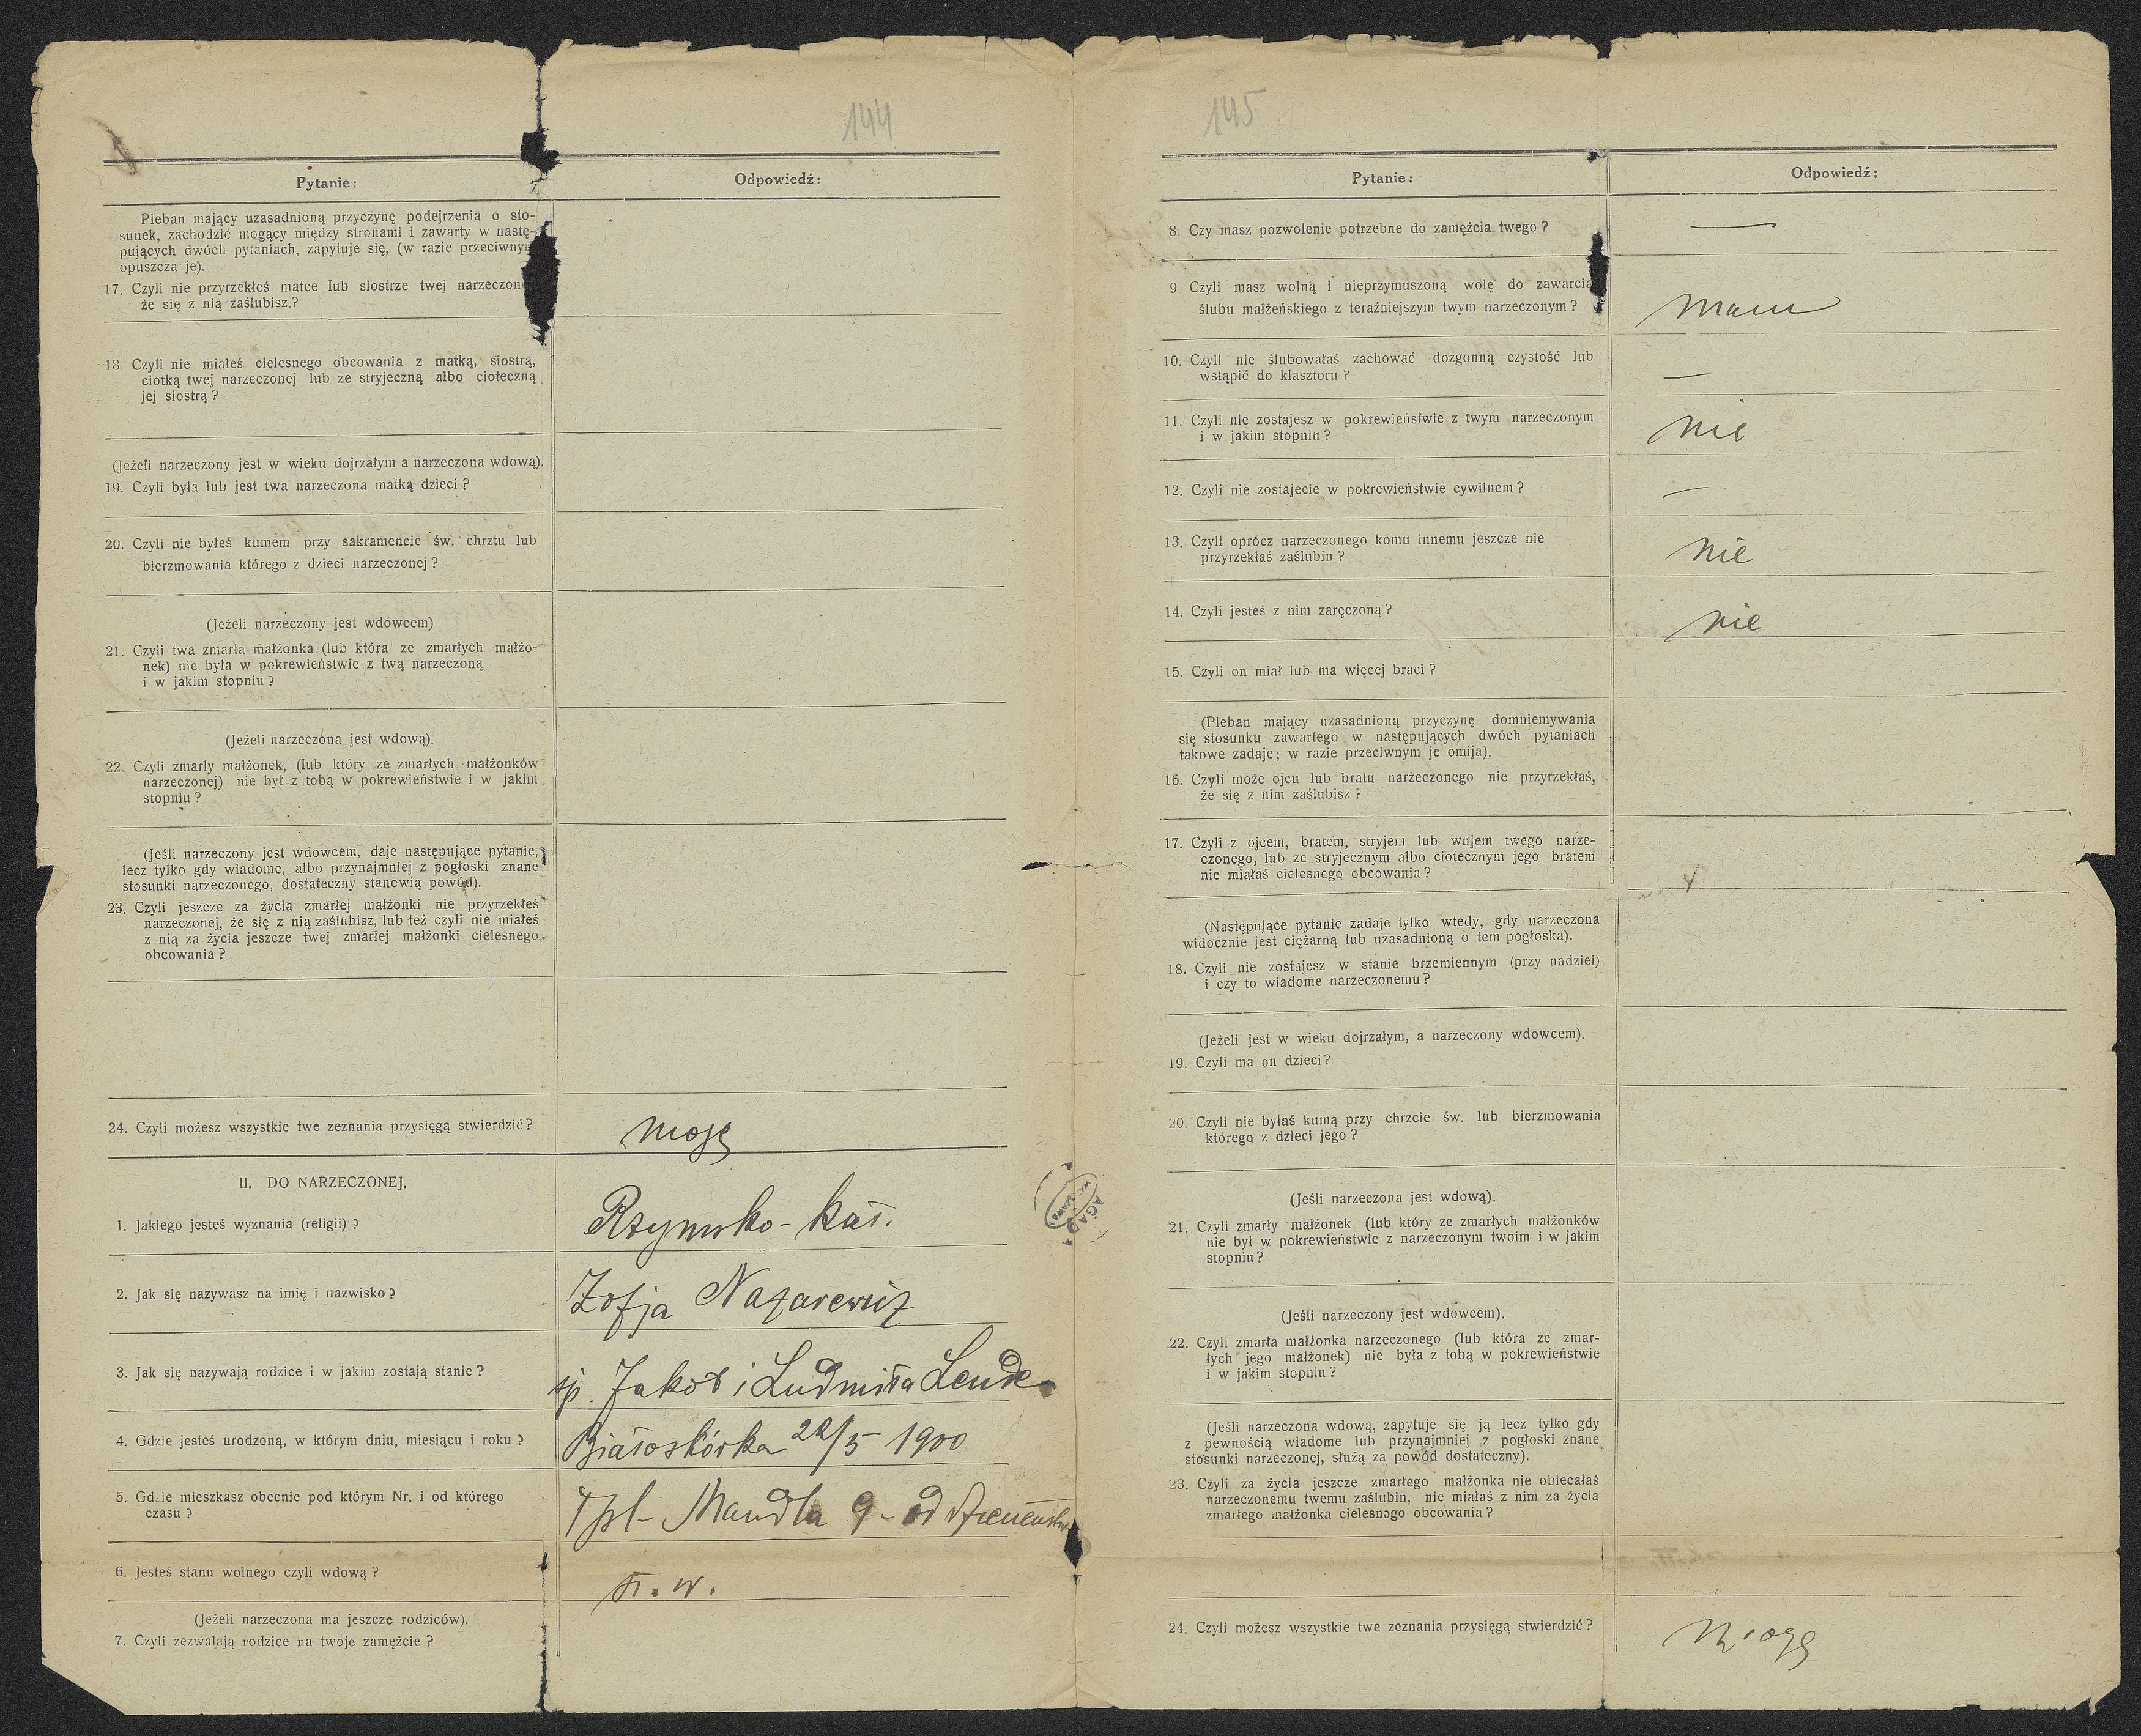 144
Pytanie:
Odpowiedź:
Pleban mający uzasadnioną przyczynę podejrzenia o sto-
sunek, zachodzić mogący między stronami i zawarty w nastę-
pujących dwóch pytaniach, zapytuje się, (w razie przeciwny
opuszcza je).
17. Czyli nie przyrzekłeś matce lub siostrze twej narzeczon
że się z nią zaślubisz?
18. Czyli nie miałeś cielesnego obcowania z matką, siostrą,
ciotką twej narzeczonej lub ze stryjeczną albo cioteczną
jej siostrą?
(Jeżeli narzeczony jest w wieku dojrzałym a narzeczona wdową).
19. Czyli była lub jest twa narzeczona matką dzieci?
20. Czyli nie byłeś kumem przy sakramencie św. chrztu lub
bierzmowania którego z dzieci narzeczonej?
(Jeżeli narzeczony jest wdowcem)
21. Czyli twa zmarła małżonka (lub która ze zmarłych małżo-
nek) nie była w pokrewieństwie z twą narzeczoną
i w jakim stopniu?
(Jeżeli narzeczona jest wdową).
22. Czyli zmarly małżonek, (lub który ze zmarłych małżonków
narzeczonej) nie był z tobą w pokrewieństwie i w jakim
stopniu?
(Jeśli narzeczony jest wdowcem, daje następujące pytanie,
lecz tylko gdy wiadome, albo przynajmniej z pogłoski znane
stosunki narzeczonego, dostateczny stanowią powód).
23. Czyli jeszcze za życia zmarłej małżonki nie przyrzekłeś
narzeczonej, że się z nią zaślubisz, lub też czyli nie miałeś
z nią za życia jeszcze twej zmarłej małżonki cielesnego
obcowania?
24. Czyli możesz wszystkie twe zeznania przysięgą stwierdzić?
mogę
II. DO NARZECZONEJ.
1. Jakiego jesteś wyznania (religii)?
Rzymsko-kat.
2. Jak się nazywasz na imię i nazwisko?
Zofja Nazarewicz
3. Jak się nazywają rodzice i w jakim zostają stanie?
śp. Jakób i Ludmiła
4. Gdzie jesteś urodzoną, w którym dniu, miesiącu i roku?
Białoskórka /5 1900
5. Gdzie mieszkasz obecnie pod którym Nr. i od którego
czasu?
Tpl- Mandla 9 - od
6. Jesteś stanu wolnego czyli wdową?
st. w.
(Jeżeli narzeczona ma jeszcze rodziców).
7. Czyli zezwalają rodzice na twoje zamężcie?
AGAD
145
Pytanie:
Odpowiedź:
8. Czy masz pozwolenie potrzebne do zamężcia twego?
—
9 Czyli masz wolną i nieprzymuszoną wolę do zawarcia
ślubu małżeńskiego z teraźniejszym twym narzeczonym?
mam
10. Czyli nie ślubowałaś zachować dozgonną czystość lub
wstąpić do klasztoru?
—
11. Czyli nie zostajesz w pokrewieńsfwie z twym narzeczonym
i w jakim stopniu?
nie
12. Czyli nie zostajecie w pokrewieństwie cywilnem?
—
13. Czyli oprócz narzeczonego komu innemu jeszcze nie
przyrzekłaś zaślubin?
nie
14. Czyli jesteś z nim zaręczoną?
nie
15. Czyli on miał lub ma więcej braci?
(Pleban mający uzasadnioną przyczynę domniemywania
się stosunku zawartego w następujących dwóch pytaniach
takowe zadaje; w razie przeciwnym je omija).
16. Czyli może ojcu lub bratu narzeczonego nie przyrzekłaś,
że się z nim zaślubisz?
17. Czyli z ojcem, bratem, stryjem lub wujem twego narze-
czonego, lub ze stryjecznym albo ciotecznym jego bratem
nie miałaś cielesnego obcowania?
(Następujące pytanie zadaje tylko wtedy, gdy narzeczona
widocznie jest ciężarną lub uzasadnioną o tem pogłoska).
18. Czyli nie zostajesz w stanie brzemiennym (przy nadziei)
i czy to wiadome narzeczonemu?
(Jeżeli jest w wieku dojrzałym, a narzeczony wdowcem).
19. Czyli ma on dzieci?
20. Czyli nie byłaś kumą przy chrzcie św. lub bierzmowania
którego z dzieci jego?
(Jeśli narzeczona jest wdową).
21. Czyli zmarły małżonek (lub który ze zmarłych małżonków
nie był w pokrewieństwie z narzeczonym twoim i w jakim
stopniu?
(Jeśli narzeczony jest wdowcem).
22. Czyli zmarła małżonka narzeczonego (lub która ze zmar-
łych jego małżonek) nie była z tobą w pokrewieństwie
i w jakim stopniu?
(Jeśli narzeczona wdową, zapytuje się ją lecz tylko gdy
z pewnością wiadome lub przynajmniej z pogłoski znane
stosunki narzeczonej, służą za powód dostateczny).
23. Czyli za życia jeszcze zmarłego małżonka nie obiecałaś
narzeczonemu twemu zaślubin, nie miałaś z nim za życia
zmarłego małżonka cielesnego obcowania?
24. Czyli możesz wszystkie twe zeznania przysięgą stwierdzić?
mogę